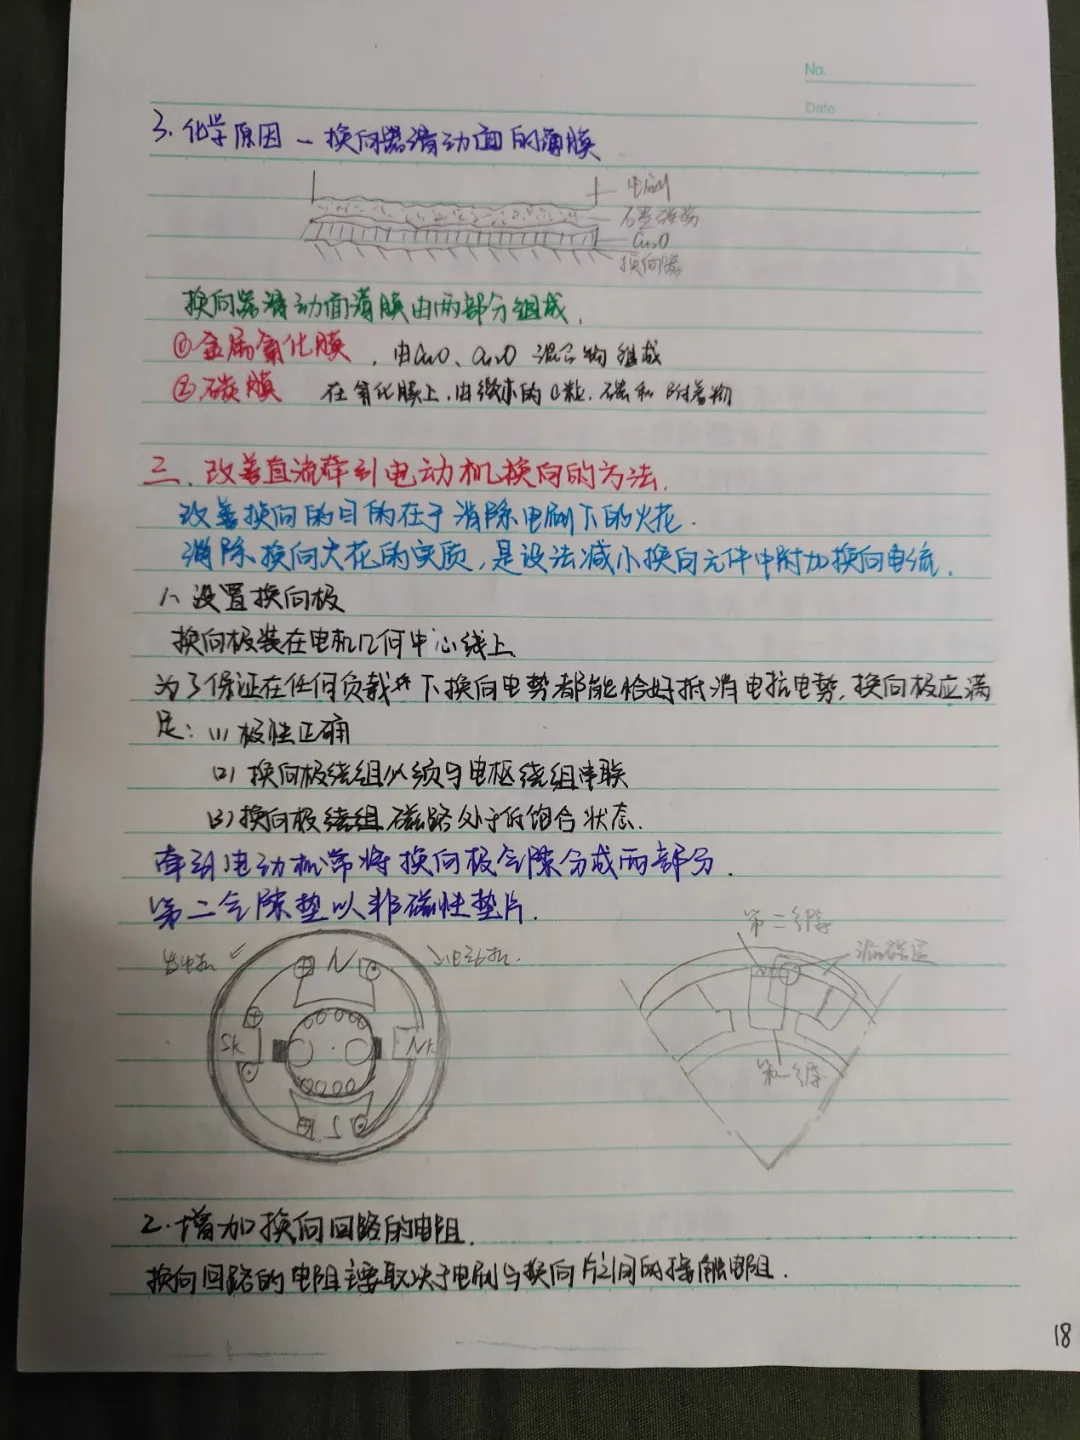 No.
Date
3. 化学原因 — 换向器滑动面的薄膜
电刷
石墨
Cu₂O
换向器
换向器滑动面薄膜由两部分组成.
①金属氧化膜 . 由CuO、Cu₂O 混合物组成
②碳膜 在氧化膜上.由微小的C粒.碳和附着物
三. 改善直流牵引电动机换向的方法.
改善换向的目的在于消除电刷下的火花.
消除换向火花的实质,是设法减小换向元件中附加换向电流.
1、设置换向极
换向极装在电机几何中心线上.
为了保证在任何负载下换向电势都能恰好抵消电抗电势,换向极应满
足: (1) 极性正确
(2) 换向极绕组必须与电枢绕组串联
(3) 换向极绕组磁路处于低饱合状态.
牵引电动机常将换向极气隙分成两部分.
第二气隙垫以非磁性垫片.
第二气隙
发电机
电动机.
N
漏磁通
N
Sk
Nk
第一气隙
S
2. 增加换向回路的电阻.
换向回路的电阻主要取决于电刷与换向片之间的接触电阻.
18